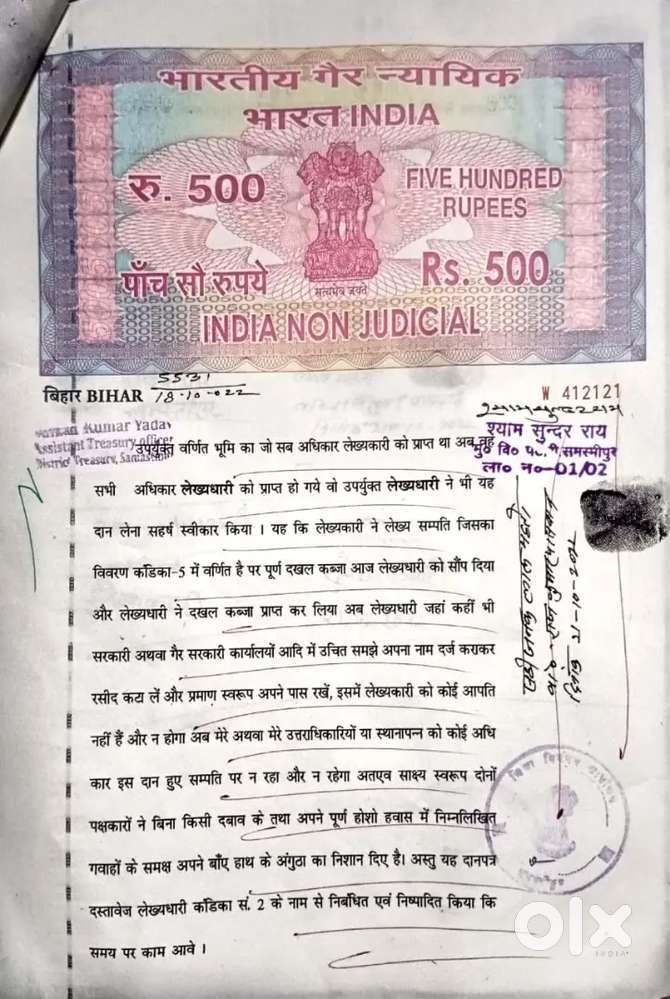 भारतीय गैर न्यायिक
भारत INDIA
रु. 500
FIVE HUNDRED
RUPEES
पाँच सौ रुपये
Rs. 500
सत्यमेव जयते
INDIA NON JUDICIAL
बिहार BIHAR
5531
18-10-022
W 412121
श्याम सुन्दर राय
मु० वि० प०, समस्तीपुर
ला० न०-01/02
Kumar Yadav
Assistant Treasury officer
District Treasury, Samastipur
उपर्युक्त वर्णित भूमि का जो सब अधिकार लेख्यकारी को प्राप्त था अब वह
सभी अधिकार लेख्यधारी को प्राप्त हो गये वो उपर्युक्त लेख्यधारी ने भी यह
दान लेना सहर्ष स्वीकार किया । यह कि लेख्यकारी ने लेख्य सम्पति जिसका
विवरण कंडिका-5 में वर्णित है पर पूर्ण दखल कब्जा आज लेख्यधारी को सौंप दिया
और लेख्यधारी ने दखल कब्जा प्राप्त कर लिया अब लेख्यधारी जहां कहीं भी
सरकारी अथवा गैर सरकारी कार्यालयों आदि में उचित समझे अपना नाम दर्ज कराकर
रसीद कटा लें और प्रमाण स्वरूप अपने पास रखें, इसमें लेख्यकारी को कोई आपति
नहीं हैं और न होगा अब मेरे अथवा मेरे उत्तराधिकारियों या स्थानापन्न को कोई अधि
कार इस दान हुए सम्पति पर न रहा और न रहेगा अतएव साक्ष्य स्वरूप दोनों
पक्षकारों ने बिना किसी दबाव के तथा अपने पूर्ण होशो हवास में निम्नलिखित्
गवाहों के समक्ष अपने बाँए हाथ के अंगुठा का निशान दिए है। अस्तु यह दानपत्र
दस्तावेज लेख्यधारी कंडिका सं. 2 के नाम से निबंधित एवं निष्पादित किया कि
समय पर काम आवे ।
olx
INDIA